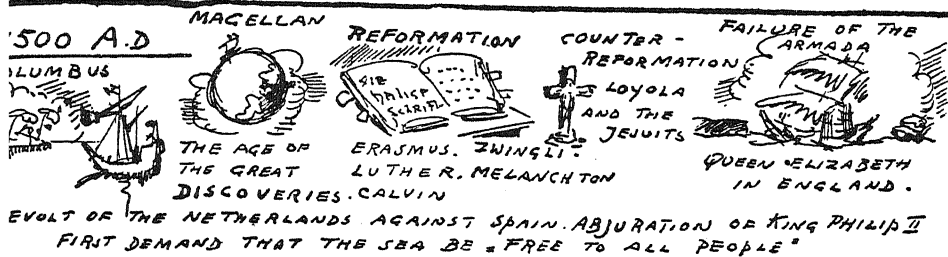 MAGELLAN
500 A.D
OLUMBUS
THE AGE OF
THE GREAT
DISCOVERIES.
REFORMATION
DIE
HEILIGE
SCHRIFT
ERASMUS. ZWINGLI.
LUTHER. MELANCHTON
CALVIN
COUNTER-
REFORMATION
LOYOLA
AND THE
JESUITS
FAILURE OF THE
ARMADA
QUEEN ELIZABETH
IN ENGLAND.
EVOLT OF THE NETHERLANDS AGAINST SPAIN. ABJURATION OF KING PHILIP II
FIRST DEMAND THAT THE SEA BE "FREE TO ALL PEOPLE"